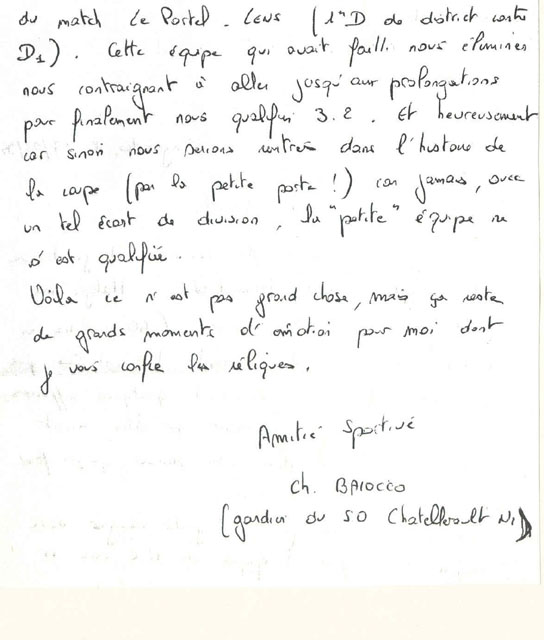 du match Le Portel - LENS (1ère D de district contre
D1). Cette équipe qui avait failli nous éliminer
nous contraignant à aller jusqu'aux prolongations
pour finalement nous qualifier 3.2. Et heureusement
car sinon nous serions rentrés dans l'histoire de
la coupe (par la petite porte !) car jamais, avec
un tel écart de division, la "petite" équipe ne
s'est qualifiée.
Voilà ce n'est pas grand chose, mais ça reste
de grands moments d'émotion pour moi dont
je vous confie les réliques.
Amitié Sportive
Ch. BAIOCCO
(gardien du SO Chatellerault N1)